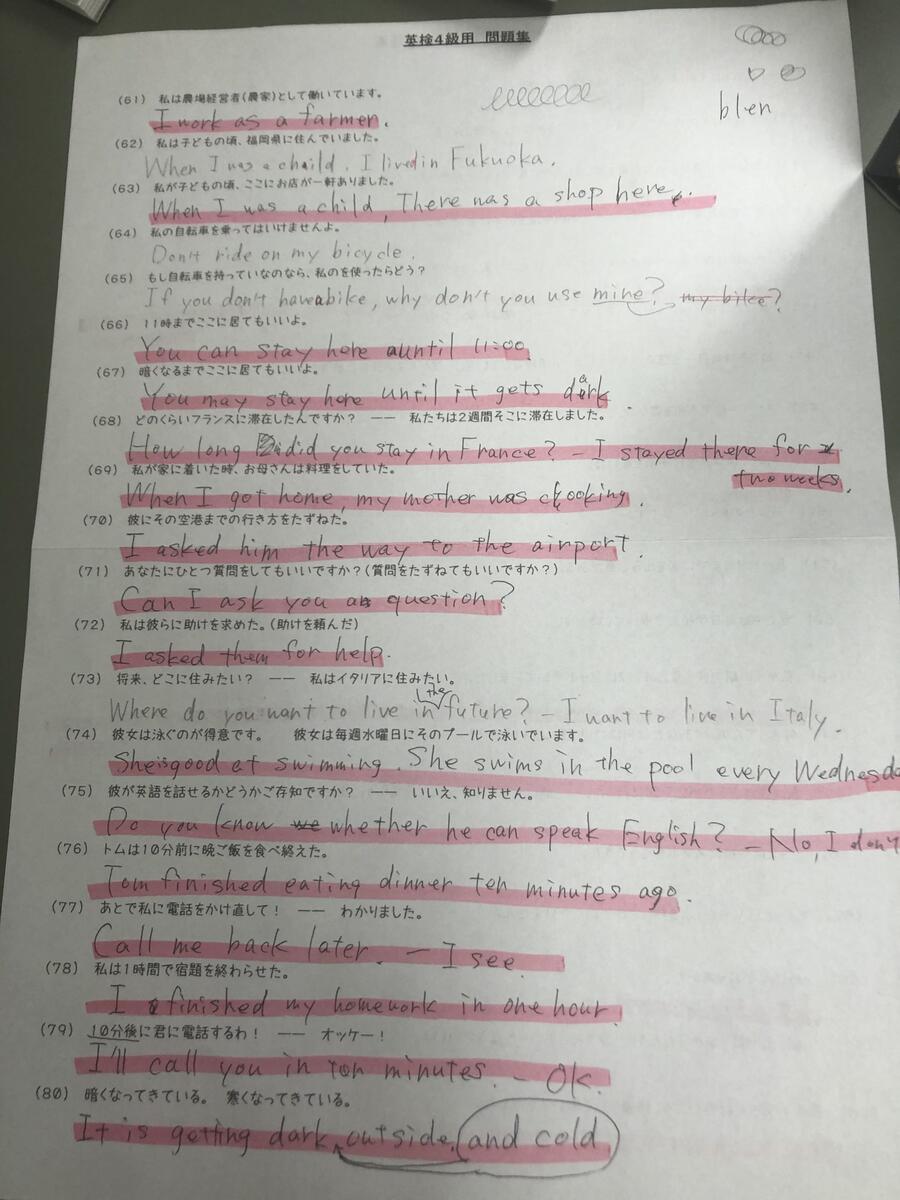 英検4級用 問題集
blen
(61) 私は農場経営者(農家)として働いています。
I work as a farmer.
(62) 私は子どもの頃、福岡県に住んでいました。
When I was a chaild, I lived in Fukuoka.
(63) 私が子どもの頃、ここにお店が一軒ありました。
When I was a child, There was a shop here.
(64) 私の自転車を乗ってはいけませんよ。
Don't ride on my bicycle.
(65) もし自転車を持っていなのなら、私のを使ったらどう?
If you don't have a bike, why don't you use mine? my bike?
(66) 11時までここに居てもいいよ。
You can stay here until 11:00.
(67) 暗くなるまでここに居てもいいよ。
You may stay here until it gets dark.
(68) どのくらいフランスに滞在したんですか? ―― 私たちは2週間そこに滞在しました。
How long did you stay in France? - I stayed there for
two weeks.
(69) 私が家に着いた時、お母さんは料理をしていた。
When I got home, my mother was cooking.
(70) 彼にその空港までの行き方をたずねた。
I asked him the way to the airport.
(71) あなたにひとつ質問をしてもいいですか?(質問をたずねてもいいですか?)
Can I ask you a question?
(72) 私は彼らに助けを求めた。(助けを頼んだ)
I asked them for help.
(73) 将来、どこに住みたい? ―― 私はイタリアに住みたい。
Where do you want to live in the future? - I want to live in Italy.
(74) 彼女は泳ぐのが得意です。 彼女は毎週水曜日にそのプールで泳いでいます。
She is good at swimming. She swims in the pool every Wednesda
(75) 彼が英語を話せるかどうかご存知ですか? ―― いいえ、知りません。
Do you know we whether he can speak English? - No, I don't
(76) トムは10分前に晩ご飯を食べ終えた。
Tom finished eating dinner ten minutes ago.
(77) あとで私に電話をかけ直して! ―― わかりました。
Call me back later. - I see.
(78) 私は1時間で宿題を終わらせた。
I finished my homework in one hour.
(79) 10分後に君に電話するわ! ―― オッケー!
I'll call you in ten minutes. - OK.
(80) 暗くなってきている。 寒くなってきている。
It is getting dark outside. and cold